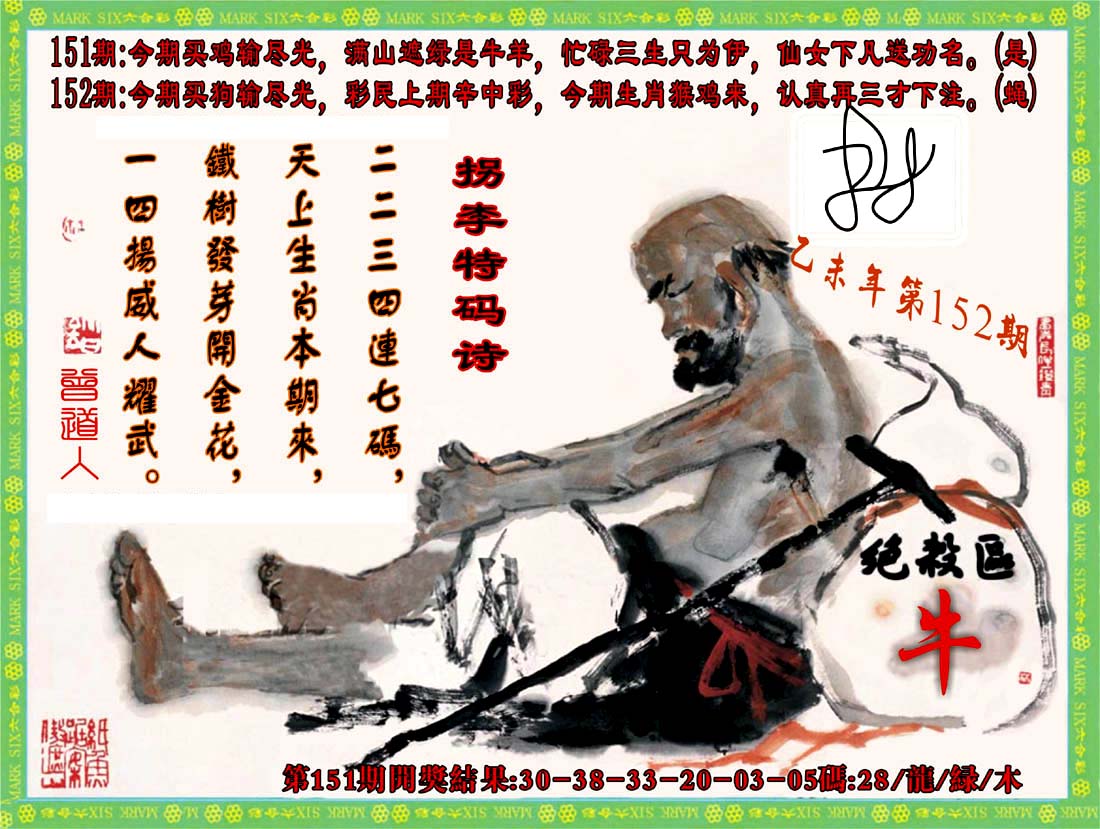 MARK SIX六合彩
151期:今期买鸡输尽光，满山遮绿是牛羊，忙碌三生只为伊，仙女下凡送功名。(是)
152期:今期买狗输尽光，彩民上期幸中彩，今期生肖猴鸡来，认真再三才下注。(蝇)
拐李特码诗
二二三四連七碼，
天上生肖本期來，
鐵樹發芽開金花，
一四揚威人耀武。
曾道人
乙未年第152期
绝殺區
牛
第151期開獎結果:30-38-33-20-03-05碼:28/龍/緑/木